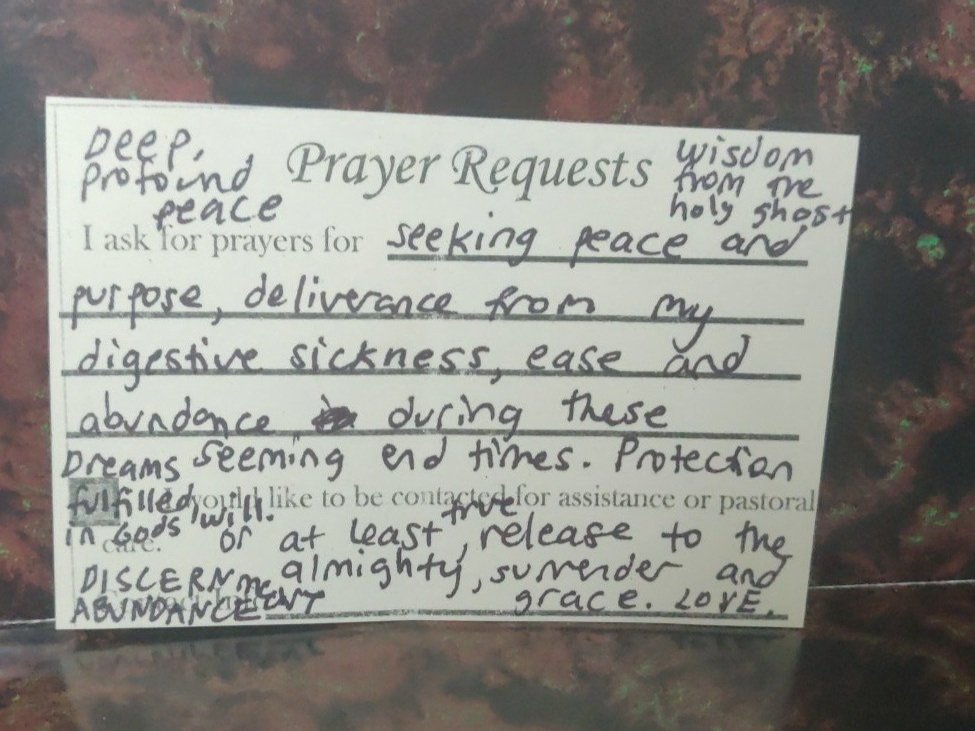 Deep,
profound
peace
Prayer Requests
wisdom
from the
holy ghost
I ask for prayers for seeking peace and
purpose, deliverance from my
digestive sickness, ease and
abundance during these
seeming end times. Protection
Dreams
fulfilled
in Gods will.
you'd like to be contacted for assistance or pastoral
care.
or at least, true release to the
almighty, surrender and
grace. LOVE.
DISCERNment
ABUNDANCE